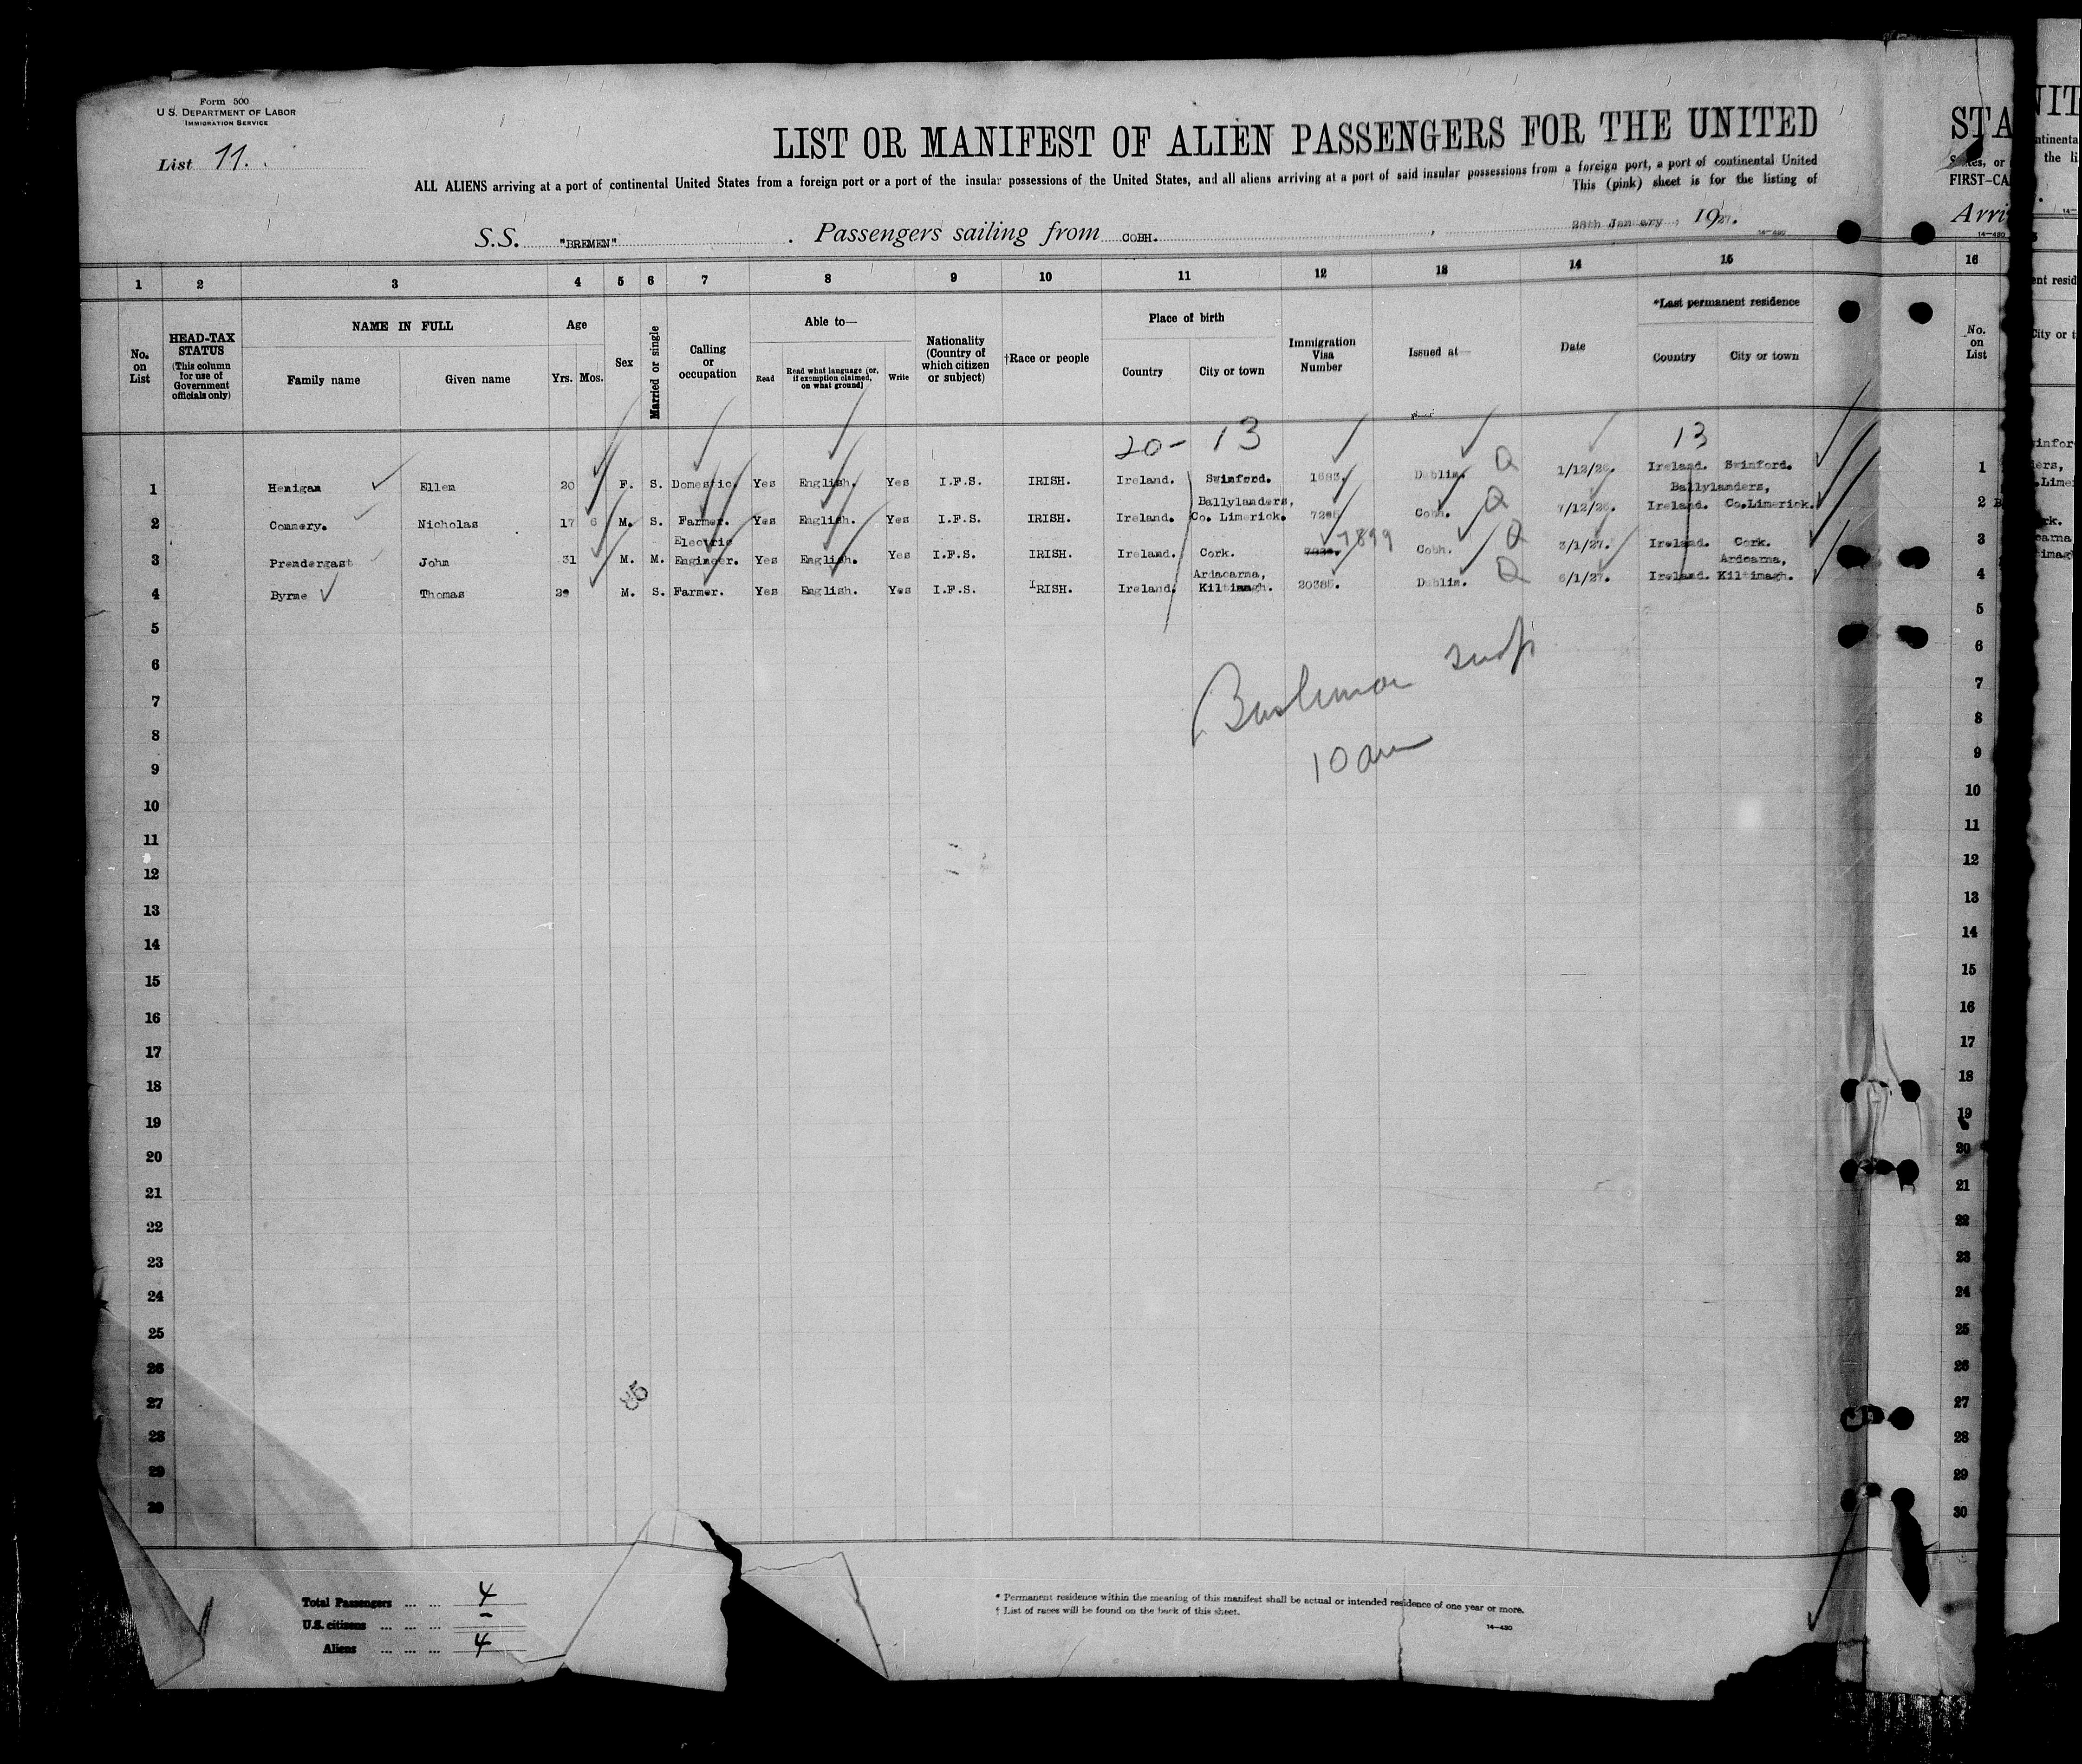 Form 500
U S. DEPARTMENT OF LABOR
IMMIGRATION SERVICE
List 11.
LIST OR MANIFEST OF ALIEN PASSENGERS FOR THE UNITED
ALL ALIENS arriving at a port of continental United States from a foreign port or a port of the insular possessions of the United States, and all aliens arriving at a port of said insular possessions from a foreign port, a port of continental United
This (pink) sheet is for the listing of
S.S. "BREMEN" . Passengers sailing from COBH. , 28th January , 1927.
14-420
STA
FIRST-CA
Arri
14-420
1 2 3 4 5 6 7 8 9 10 11 12 13 14 15 16
No. on List
HEAD-TAX STATUS (This column for use of Government officials only)
NAME IN FULL
Family name Given name
Age
Yrs. Mos.
Sex
Married or single
Calling or occupation
Able to—
Read Read what language (or, if exemption claimed, on what ground) Write
Nationality (Country of which citizen or subject)
†Race or people
Place of birth
Country City or town
Immigration Visa Number
Issued at—
Date
*Last permanent residence
Country City or town
No. on List
20- 13 13
1 Henigan Ellen 20 F. S. Domestic. Yes English. Yes I.F.S. IRISH. Ireland. Swinford. 1693. Dublin. Q 1/12/26. Ireland. Swinford. 1
2 Commery. Nicholas 17 6 M. S. Farmer. Yes English. Yes I.F.S. IRISH. Ireland. Ballylanders, Co. Limerick. Cobh. Q 7/12/26. Ireland. Ballylanders, Co.Limerick. 2
3 Prendergast John 31 M. M. Electric Engineer. Yes English. Yes I.F.S. IRISH. Ireland. Cork. 7899 Cobh. Q 3/1/27. Ireland. Cork. 3
4 Byrne Thomas M. S. Farmer. Yes English. Yes I.F.S. IRISH. Ireland. Ardacarna, Kiltimagh. 20385. Dublin. Q 6/1/27. Ireland. Ardcarna, Kiltimagh. 4
5 5
6 6
7 7
8 8
10 am
9 9
10 10
11 11
12 12
13 13
14 14
15 15
16 16
17 17
18 18
19 19
20 20
21 21
22 22
23 23
24 24
25 25
26 26
27 27
28 28
29 29
30 30
Total Passengers ... ... 4
U.S. citizens ... ... ... -
Aliens ... ... ... 4
* Permanent residence within the meaning of this manifest shall be actual or intended residence of one year or more.
† List of races will be found on the back of this sheet.
14-420